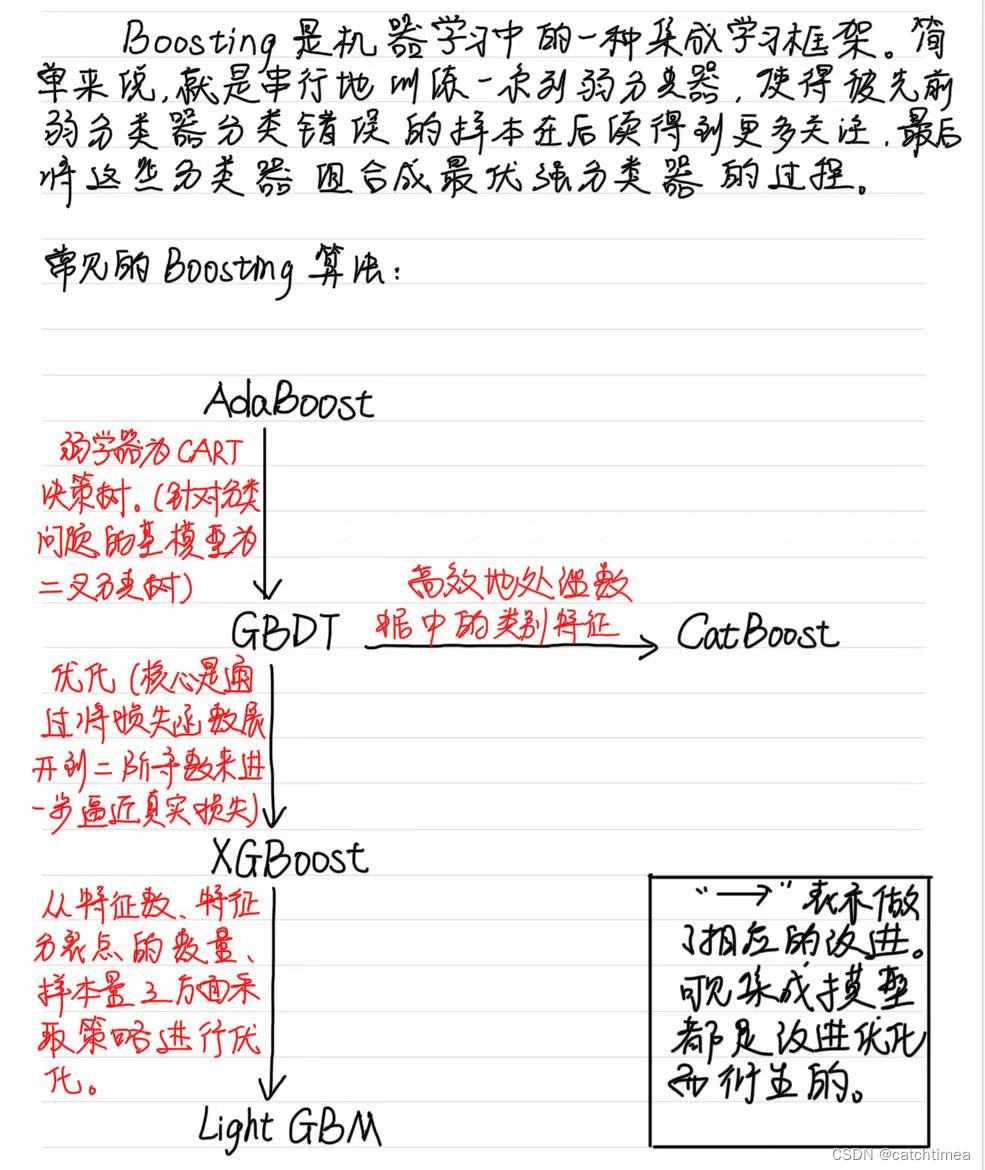 Boosting是机器学习中的一种集成学习框架。简
单来说,就是串行地训练一系列弱分类器,使得被先前
弱分类器分类错误的样本在后续得到更多关注,最后
将这些分类器组合成最优强分类器的过程。
常见的Boosting算法:
AdaBoost
弱学器为CART
决策树。(针对分类
问题的基模型为
二叉分类树)
高效地处理数
据中的类别特征
GBDT
CatBoost
优化(核心是通
过将损失函数展
开到二阶导数来进
一步逼近真实损失)
XGBoost
从特征数、特征
分裂点的数量、
样本量3方面采
取策略进行优
化。
Light GBM
“→”表示做
了相应的改进。
可见集成模型
都是改进优化
而衍生的。
CSDN @catchtimea